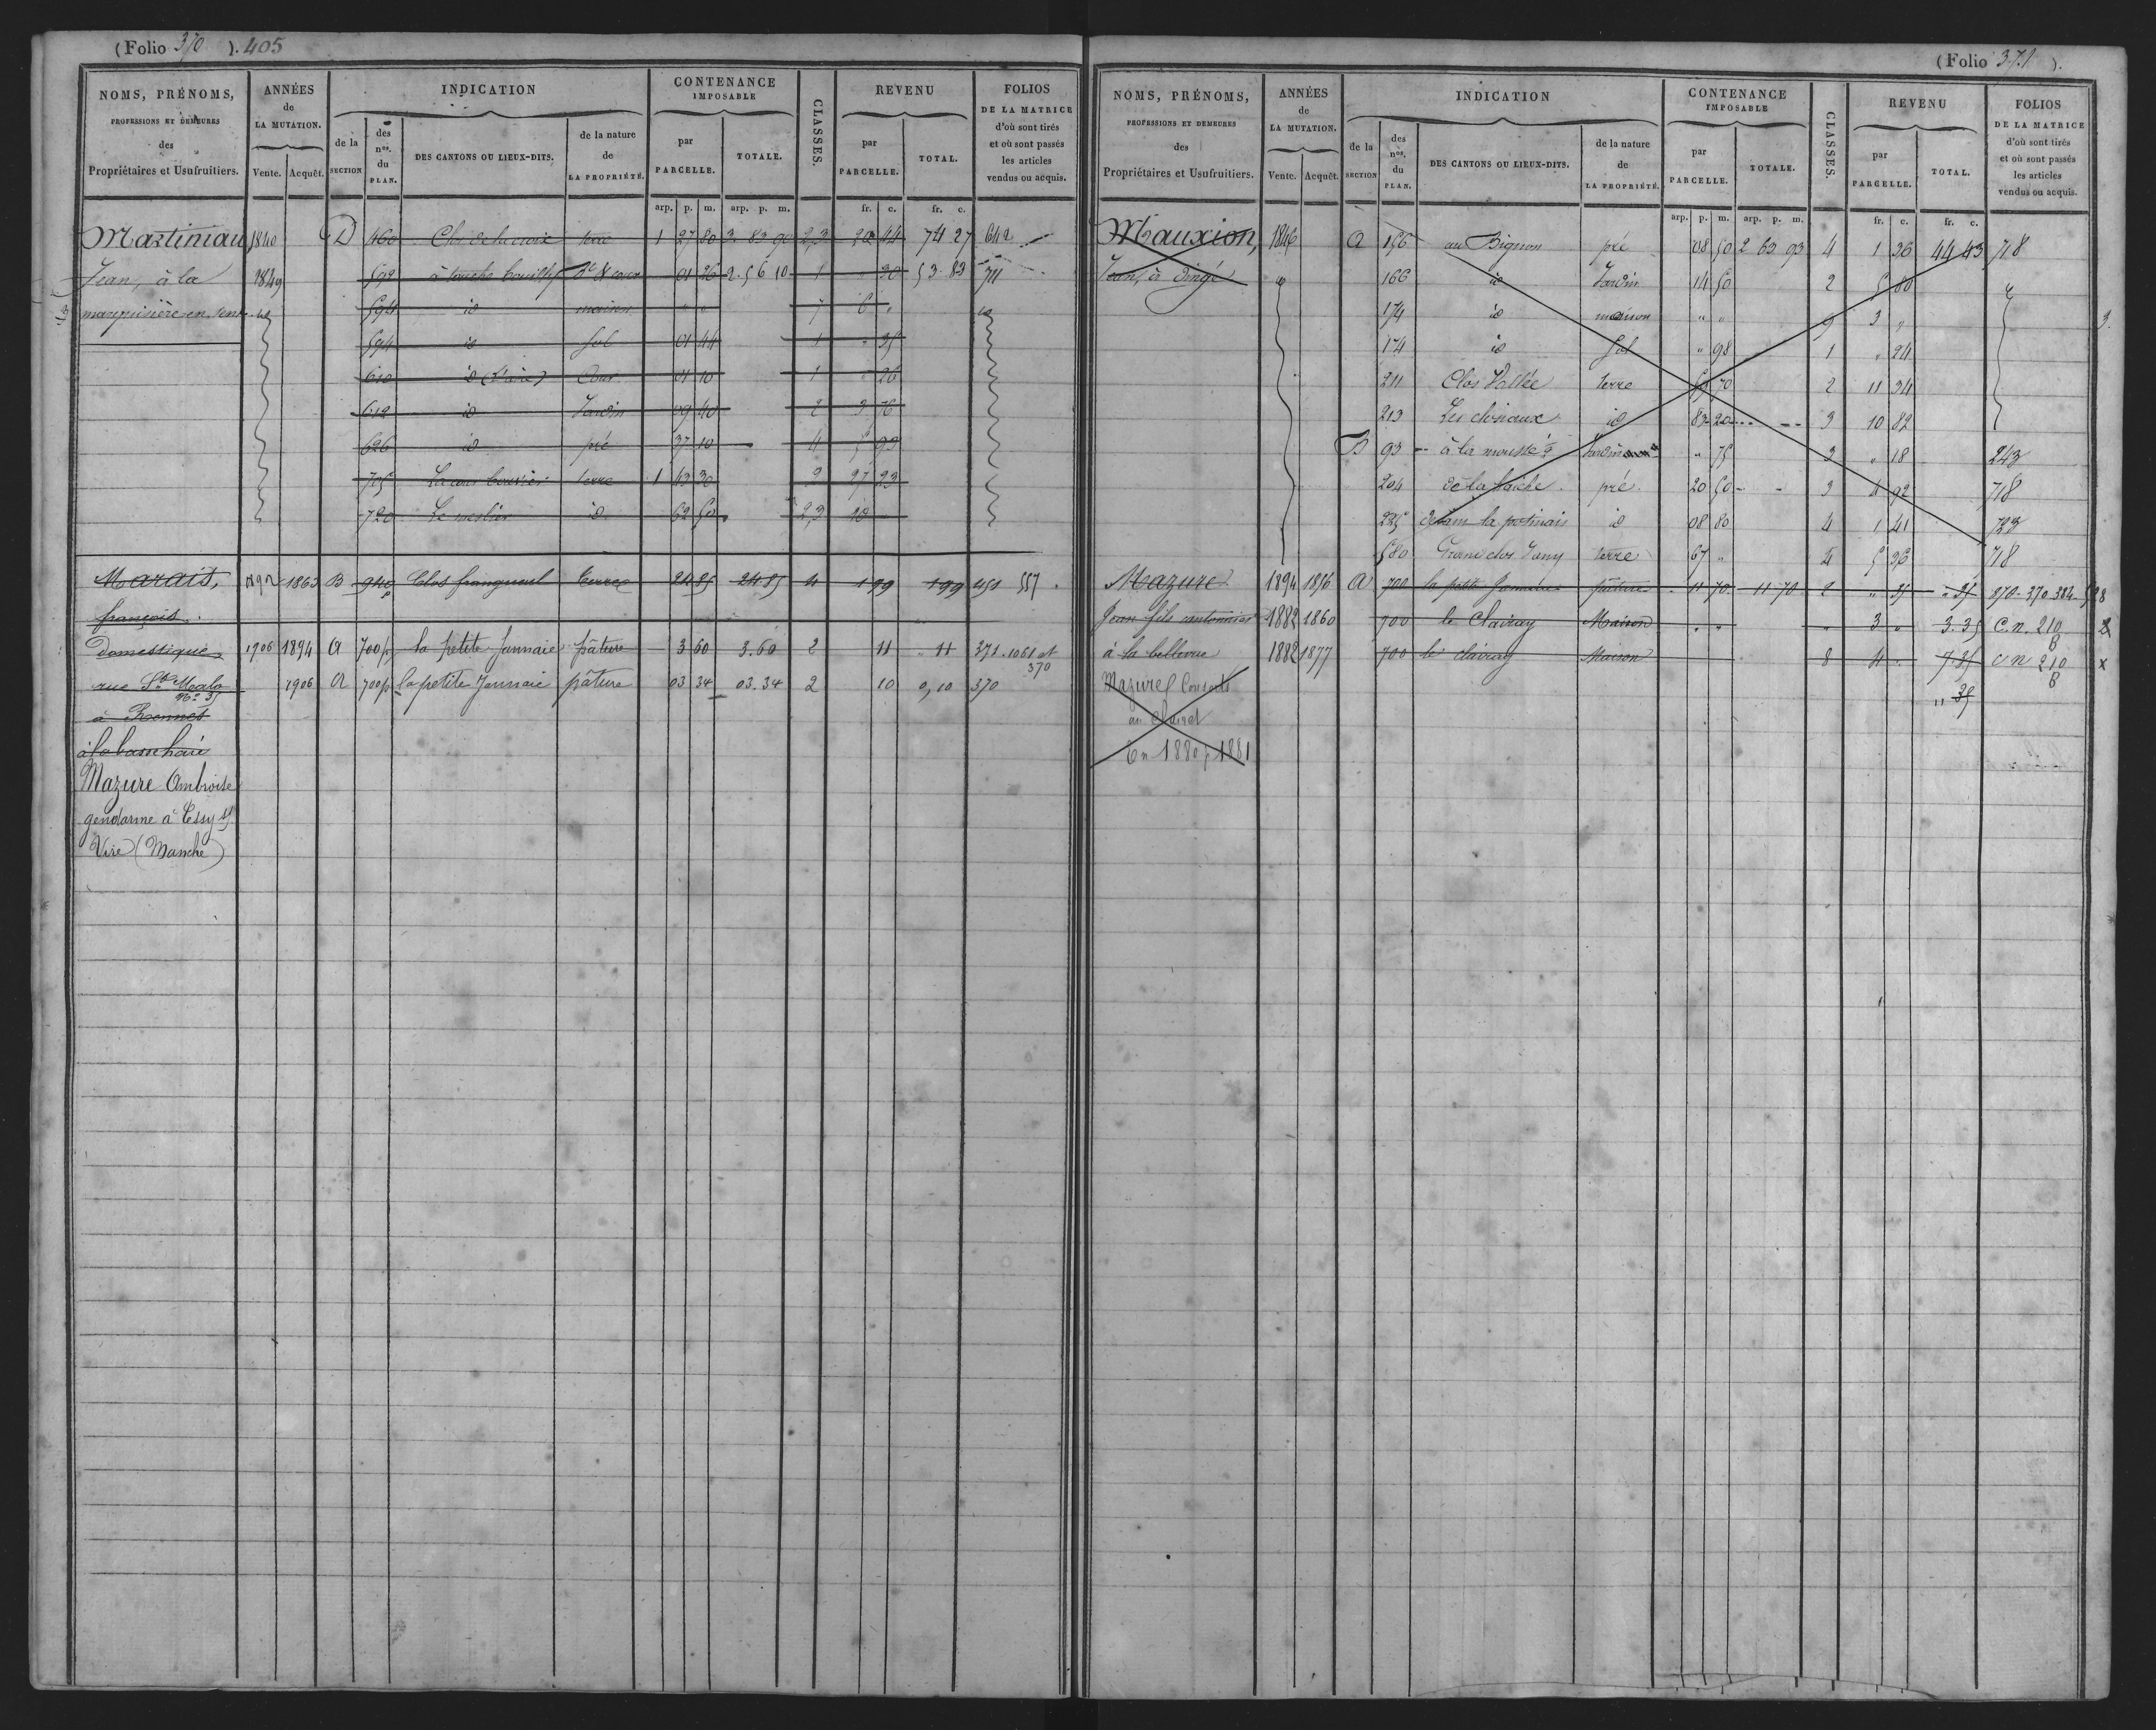 (Folio 370 ). 405
NOMS, PRÉNOMS,
PROFESSIONS ET DEMEURES
des
Propriétaires et Usufruitiers.
ANNÉES
de
LA MUTATION.
Vente. Acquêt.
INDICATION
de la
SECTION
des
nos.
du
PLAN.
DES CANTONS OU LIEUX-DITS.
de la nature
de
LA PROPRIÉTÉ.
CONTENANCE
IMPOSABLE
par
PARCELLE.
TOTALE.
CLASSES.
REVENU
par
PARCELLE.
TOTAL.
FOLIOS
DE LA MATRICE
d'où sont tirés
et où sont passés
les articles
vendus ou acquis.
arp. p. m. arp. p. m. fr. c. fr. c.
Martiniau 1840 D 460 Clos de la croix terre 1 27 80 3 83 90 2,3 20 44 74 27 642
Jean, à la 1849 592 à touche bouilly Bt & cour 01 26 2.56 10 1 " 30 53 83 711
594 id maison " " 7 6 "
594 id Sol 01 44 1 " 35
610 id (l'aire) Cour 01 10 1 " 26
612 id Jardin 09 40 2 3 76
626 id pré 37 10 4 5 93
705 terre 1 43 30 3 27 23
720 Le meslier id 62 50 2,3 10
Marais, 1892 1863 B 940 p Clos frangneul terre 24 85 24.85 4 1 99 1 99 451 557
françois
Domestique 1906 1894 A 700p la petite Jannaie pâture 3 60 3.60 2 11 " 11 371.1061 et 370
rue St Malo 1906 A 700p la petite Jannaie pâture 03 34 03.34 2 10 0,10 370
No 35
à Rennes
Mazure Ambroise
gendarme à Tessy s/
Vire (Manche)
(Folio 371 ).
NOMS, PRÉNOMS,
PROFESSIONS ET DEMEURES
des
Propriétaires et Usufruitiers.
ANNÉES
de
LA MUTATION.
Vente. Acquêt.
INDICATION
de la
SECTION
des
nos.
du
PLAN.
DES CANTONS OU LIEUX-DITS.
de la nature
de
LA PROPRIÉTÉ.
CONTENANCE
IMPOSABLE
par
PARCELLE.
TOTALE.
CLASSES.
REVENU
par
PARCELLE.
TOTAL.
FOLIOS
DE LA MATRICE
d'où sont tirés
et où sont passés
les articles
vendus ou acquis.
arp. p. m. arp. p. m. fr. c. fr. c.
Mauxion, 1846 A 156 au Bignon pré 08 50 2 63 93 4 1 36 44 43 718
Jean, à Dingé 166 id Jardin 14 50 2 5 80
174 id maison " " 9 3 "
174 id Sol " 98 1 " 24
211 Clos Vallée terre 70 2 11 34
213 Les closiaux id 83 20 3 10 82
B 93 Jardin " 75 3 " 18 243
204 pré 20 50 3 4 92 718
225 id 08 80 4 1 41 723
580 Grand clos Jamy terre 67 " 4 5 36 718
Mazure 1894 1856 A 700 la petite Jannaie pâture 11 70 11 70 2 " 35 " 35 370 382 528
Jean fils cantonnier 1882 1860 700 le Clairay Maison " " " 3 " 3.35 C.n. 210 B
à la bellevue 1882 1877 700 le clairay Maison 8 4 " 7.35 C n 210 B x
Mazure Consorts " 35
au Clairet
En 1880, 1881